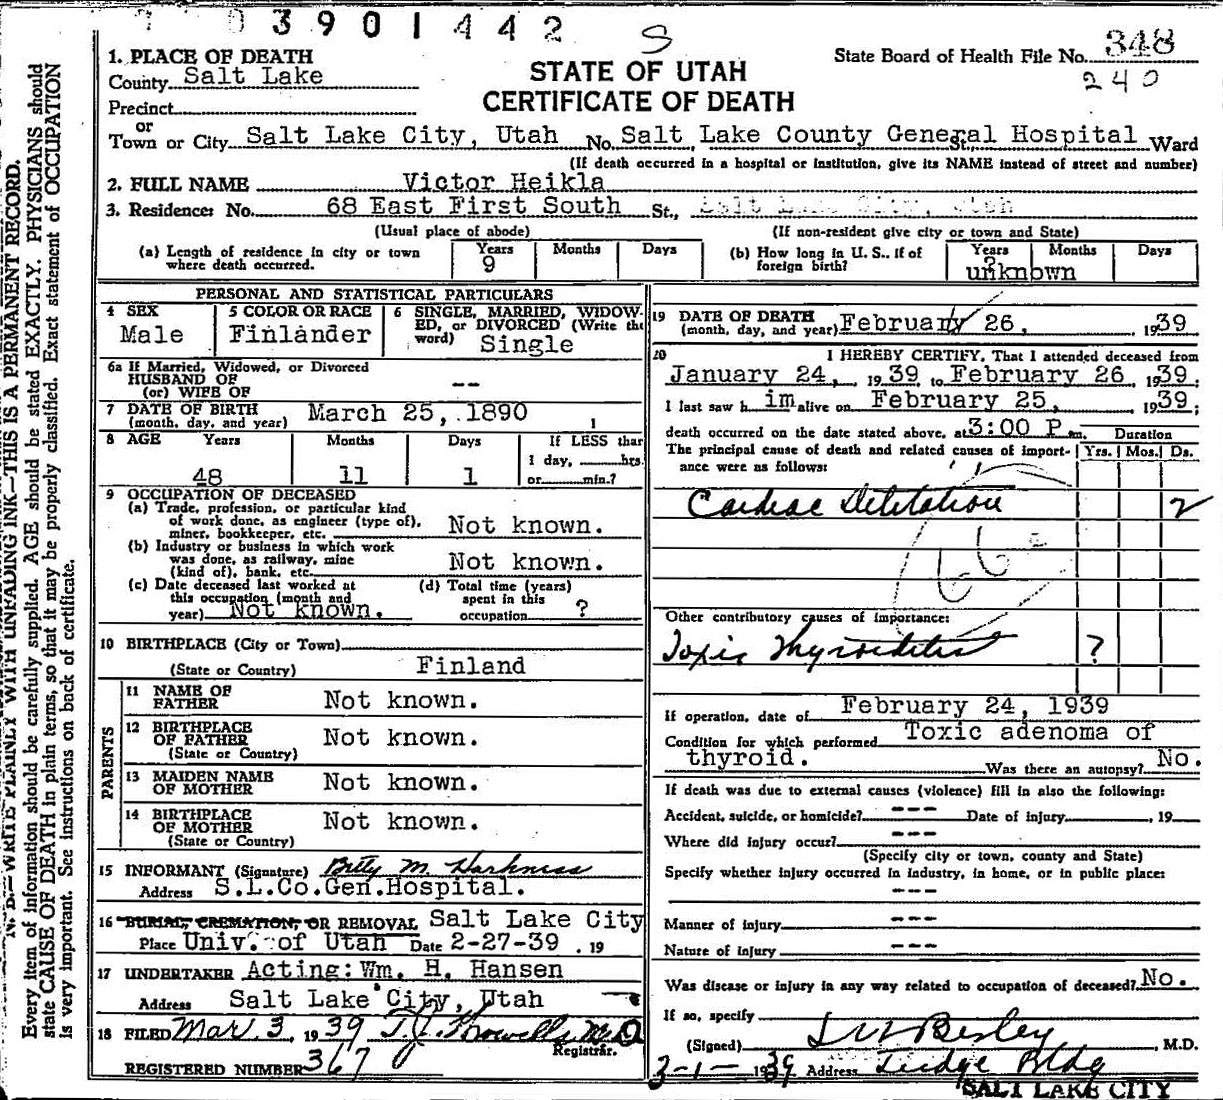 03901442 S
1. PLACE OF DEATH
County Salt Lake
Precinct
or
Town or City Salt Lake City, Utah No. Salt Lake County General Hospital St., Ward
STATE OF UTAH
CERTIFICATE OF DEATH
State Board of Health File No. 348
240
(If death occurred in a hospital or institution, give its NAME instead of street and number)
2. FULL NAME Victor Heikla
3. Residence: No. 68 East First South St., Salt Lake City, Utah
(Usual place of abode) (If non-resident give city or town and State)
(a) Length of residence in city or town where death occurred. Years 9 Months Days
(b) How long in U. S., if of foreign birth? Years unknown Months Days
PERSONAL AND STATISTICAL PARTICULARS
4 SEX Male
5 COLOR OR RACE Finlander
6 SINGLE, MARRIED, WIDOW-
ED, or DIVORCED (Write the
word) Single
6a If Married, Widowed, or Divorced
HUSBAND OF
(or) WIFE OF --
7 DATE OF BIRTH
(month, day, and year) March 25, 1890
8 AGE Years 48 Months 11 Days 1
If LESS than
1 day, hrs.
or min.?
9 OCCUPATION OF DECEASED
(a) Trade, profession, or particular kind
of work done, as engineer (type of),
miner, bookkeeper, etc. Not known.
(b) Industry or business in which work
was done, as railway, mine
(kind of), bank, etc. Not known.
(c) Date deceased last worked at
this occupation (month and
year) Not known.
(d) Total time (years)
spent in this
occupation ?
10 BIRTHPLACE (City or Town)
(State or Country) Finland
PARENTS
11 NAME OF
FATHER Not known.
12 BIRTHPLACE
OF FATHER Not known.
(State or Country)
13 MAIDEN NAME
OF MOTHER Not known.
14 BIRTHPLACE
OF MOTHER Not known.
(State or Country)
15 INFORMANT (Signature) Betty M. Harkness
Address S.L.Co.Gen.Hospital.
16 BURIAL, CREMATION, OR REMOVAL Salt Lake City
Place Univ. of Utah Date 2-27-39 . 19
17 UNDERTAKER Acting: Wm. H. Hansen
Address Salt Lake City, Utah
18 FILED Mar. 3, 1939 T.J. Howells M.D.
Registrar.
REGISTERED NUMBER 367
19 DATE OF DEATH
(month, day, and year) February 26, 1939
20 I HEREBY CERTIFY, That I attended deceased from
January 24, 1939 to February 26, 1939;
I last saw him alive on February 25, 1939;
death occurred on the date stated above, at 3:00 P m. Duration
The principal cause of death and related causes of import- Yrs. Mos. Ds.
ance were as follows:
Cardiac Dilitation 2
66
Other contributory causes of importance:
Toxic Thyroiditis ?
If operation, date of February 24, 1939
Condition for which performed Toxic adenoma of
thyroid. Was there an autopsy? No.
If death was due to external causes (violence) fill in also the following:
Accident, suicide, or homicide? --- Date of injury , 19
Where did injury occur? ---
(Specify city or town, county and State)
Specify whether injury occurred in industry, in home, or in public place:
---
Manner of injury ---
Nature of injury ---
Was disease or injury in any way related to occupation of deceased? No.
If so, specify
(Signed) Besley, M.D.
3-1-1939 Address Judge Bldg
SALT LAKE CITY
N. B.—WRITE PLAINLY WITH UNFADING INK—THIS IS A PERMANENT RECORD.
Every item of information should be carefully supplied. AGE should be stated EXACTLY. PHYSICIANS should
state CAUSE OF DEATH in plain terms, so that it may be properly classified. Exact statement of OCCUPATION
is very important. See instructions on back of certificate.